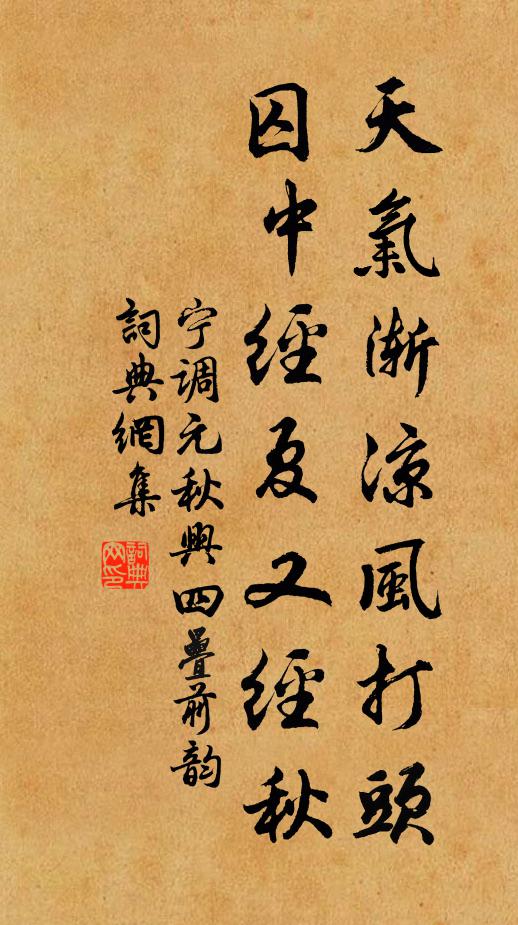 天氣漸涼風打頭
囚中經夏又經秋
宁調元秋興四疊前韵
詞典網集
詞典網印